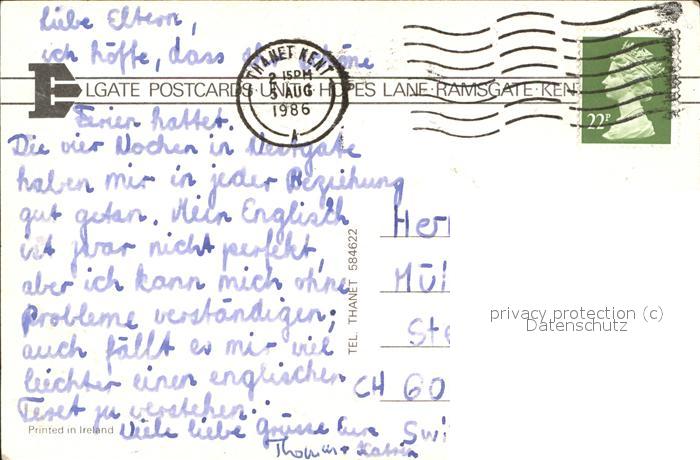 Liebe Eltern,
ich hoffe, dass
THANET KENT
2 15PM
5 AUG
1986
A
22P
ELGATE POSTCARDS · HOPES LANE · RAMSGATE · KEN
Ferien hattet.
Die vier Wochen in Westgate
haben mir in jeder Beziehung
gut getan. Mein Englisch
ist zwar nicht perfekt,
aber ich kann mich ohne
Probleme verständigen;
auch fällt es mir viel
leichter einen englischen
Text zu verstehen.
Viele liebe Grüsse Eure
Thomas + Katrin
Printed in Ireland
TEL. THANET 584622
Herr
Mül
Ste
CH 60
Swi
privacy protection (c)
Datenschutz